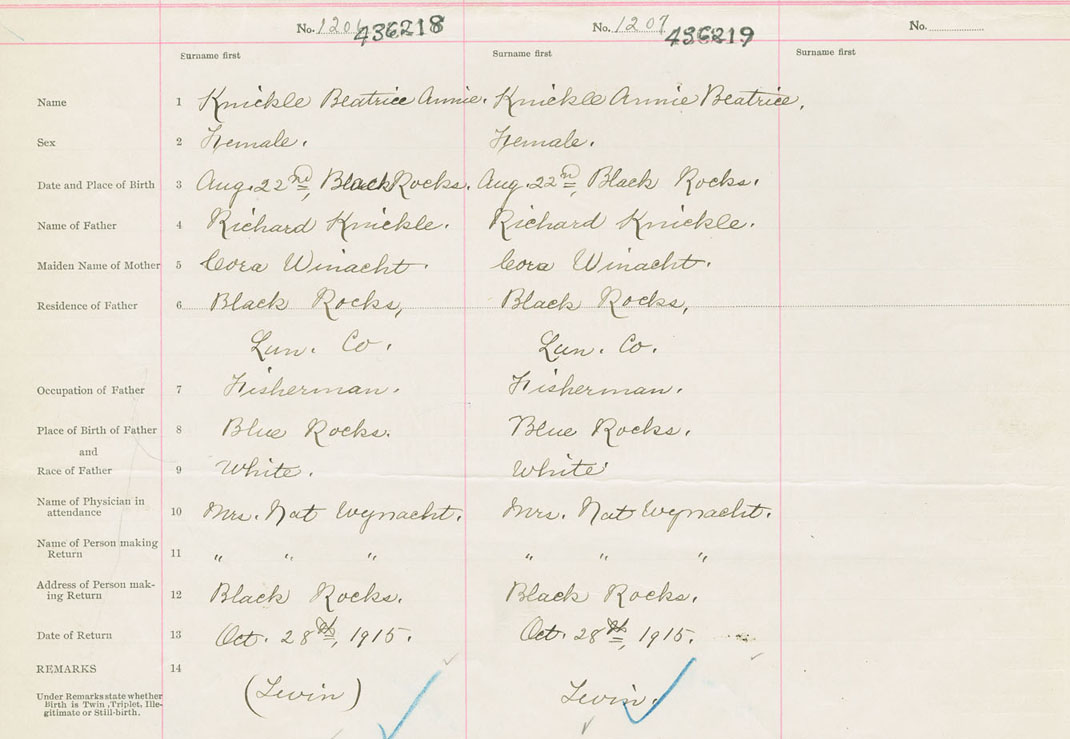 No. 1206 436218 No. 1207 436219 No.
Surname first Surname first Surname first
Name 1 Knickle Beatrice Annie. Knickle Annie Beatrice.
Sex 2 Female. Female.
Date and Place of Birth 3 Aug. 22nd, Black Rocks. Aug. 22nd, Black Rocks.
Name of Father 4 Richard Knickle. Richard Knickle.
Maiden Name of Mother 5 Cora Winacht. Cora Winacht.
Residence of Father 6 Black Rocks, Black Rocks,
Lun. Co. Lun. Co.
Occupation of Father 7 Fisherman. Fisherman.
Place of Birth of Father 8 Blue Rocks. Blue Rocks.
and
Race of Father 9 White. White
Name of Physician in
attendance 10 Mrs. Nat Wynacht. Mrs. Nat Wynacht.
Name of Person making
Return 11 " " " " " "
Address of Person mak-
ing Return 12 Black Rocks. Black Rocks.
Date of Return 13 Oct. 28th, 1915. Oct. 28th, 1915.
REMARKS 14
(Twin) Twin.
Under Remarks state whether
Birth is Twin, Triplet, Ille-
gitimate or Still-birth.